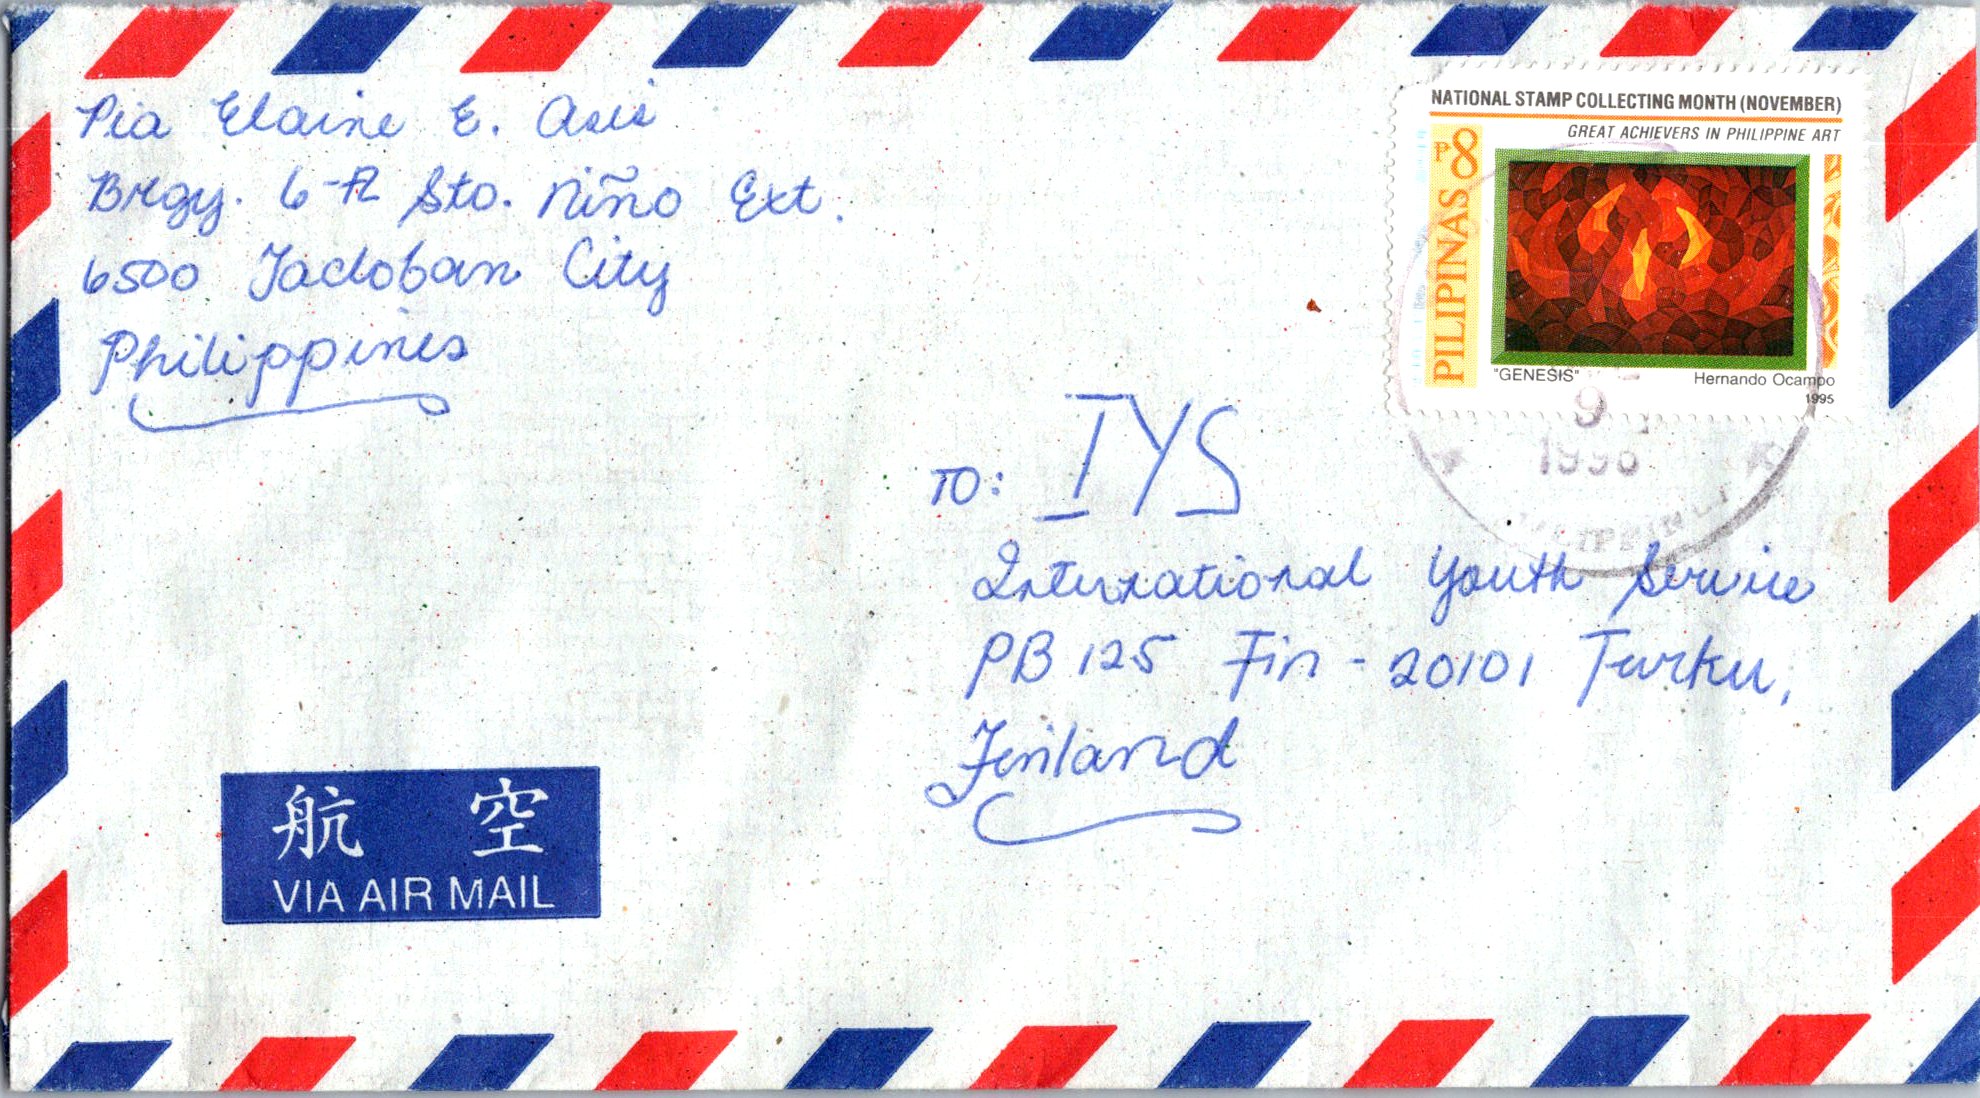 Pia Elaine E. Asis
Brgy. 6-A Sto. Niño Ext.
6500 Tacloban City
Philippines
NATIONAL STAMP COLLECTING MONTH (NOVEMBER)
GREAT ACHIEVERS IN PHILIPPINE ART
₱8
PILIPINAS
"GENESIS" Hernando Ocampo
1995
9
1996
PHILIPPINES
TO: IYS
International Youth Service
PB 125 Fin - 20101 Turku,
Finland
航 空
VIA AIR MAIL